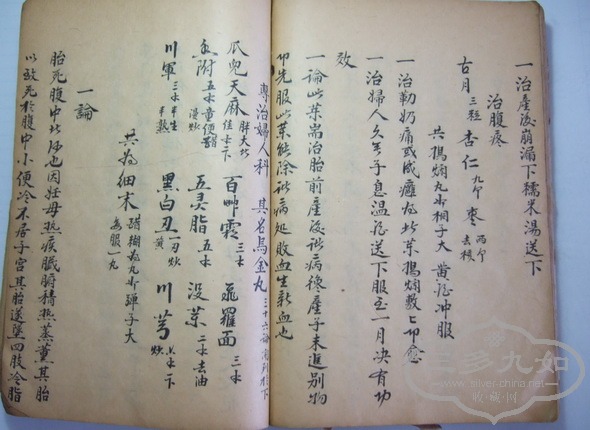 一治產後崩漏下糯米湯送下
治腹疼
古月三粒 杏仁九个 枣两个去核
共搗爛為丸如桐子大 黃酒冲服
一治勒奶痛或成癰 此藥搗爛敷上即愈
一治婦人久無子息溫酒送下服至一月決有功
效
一論此藥耑治胎前產後諸病德產子未進別物
即先服此藥能除諸病処敗血生新血也
專治婦人科 其名烏金丸 三十六論
瓜兒天麻 百艸霜三 飛羅面三
五灵脂五 没藥二 去油
川軍三 半生半熟 黑白丑 川芎
共為細末 醋糊為丸如弹子大
每服一丸
一論
胎死腹中 因妊母熱疾臓腑積熱蒸薰其胎
以致死於腹中小便冷不居子宫其胎遂墜四肢冷脂
三多九如
www.silver-china.net
收藏网